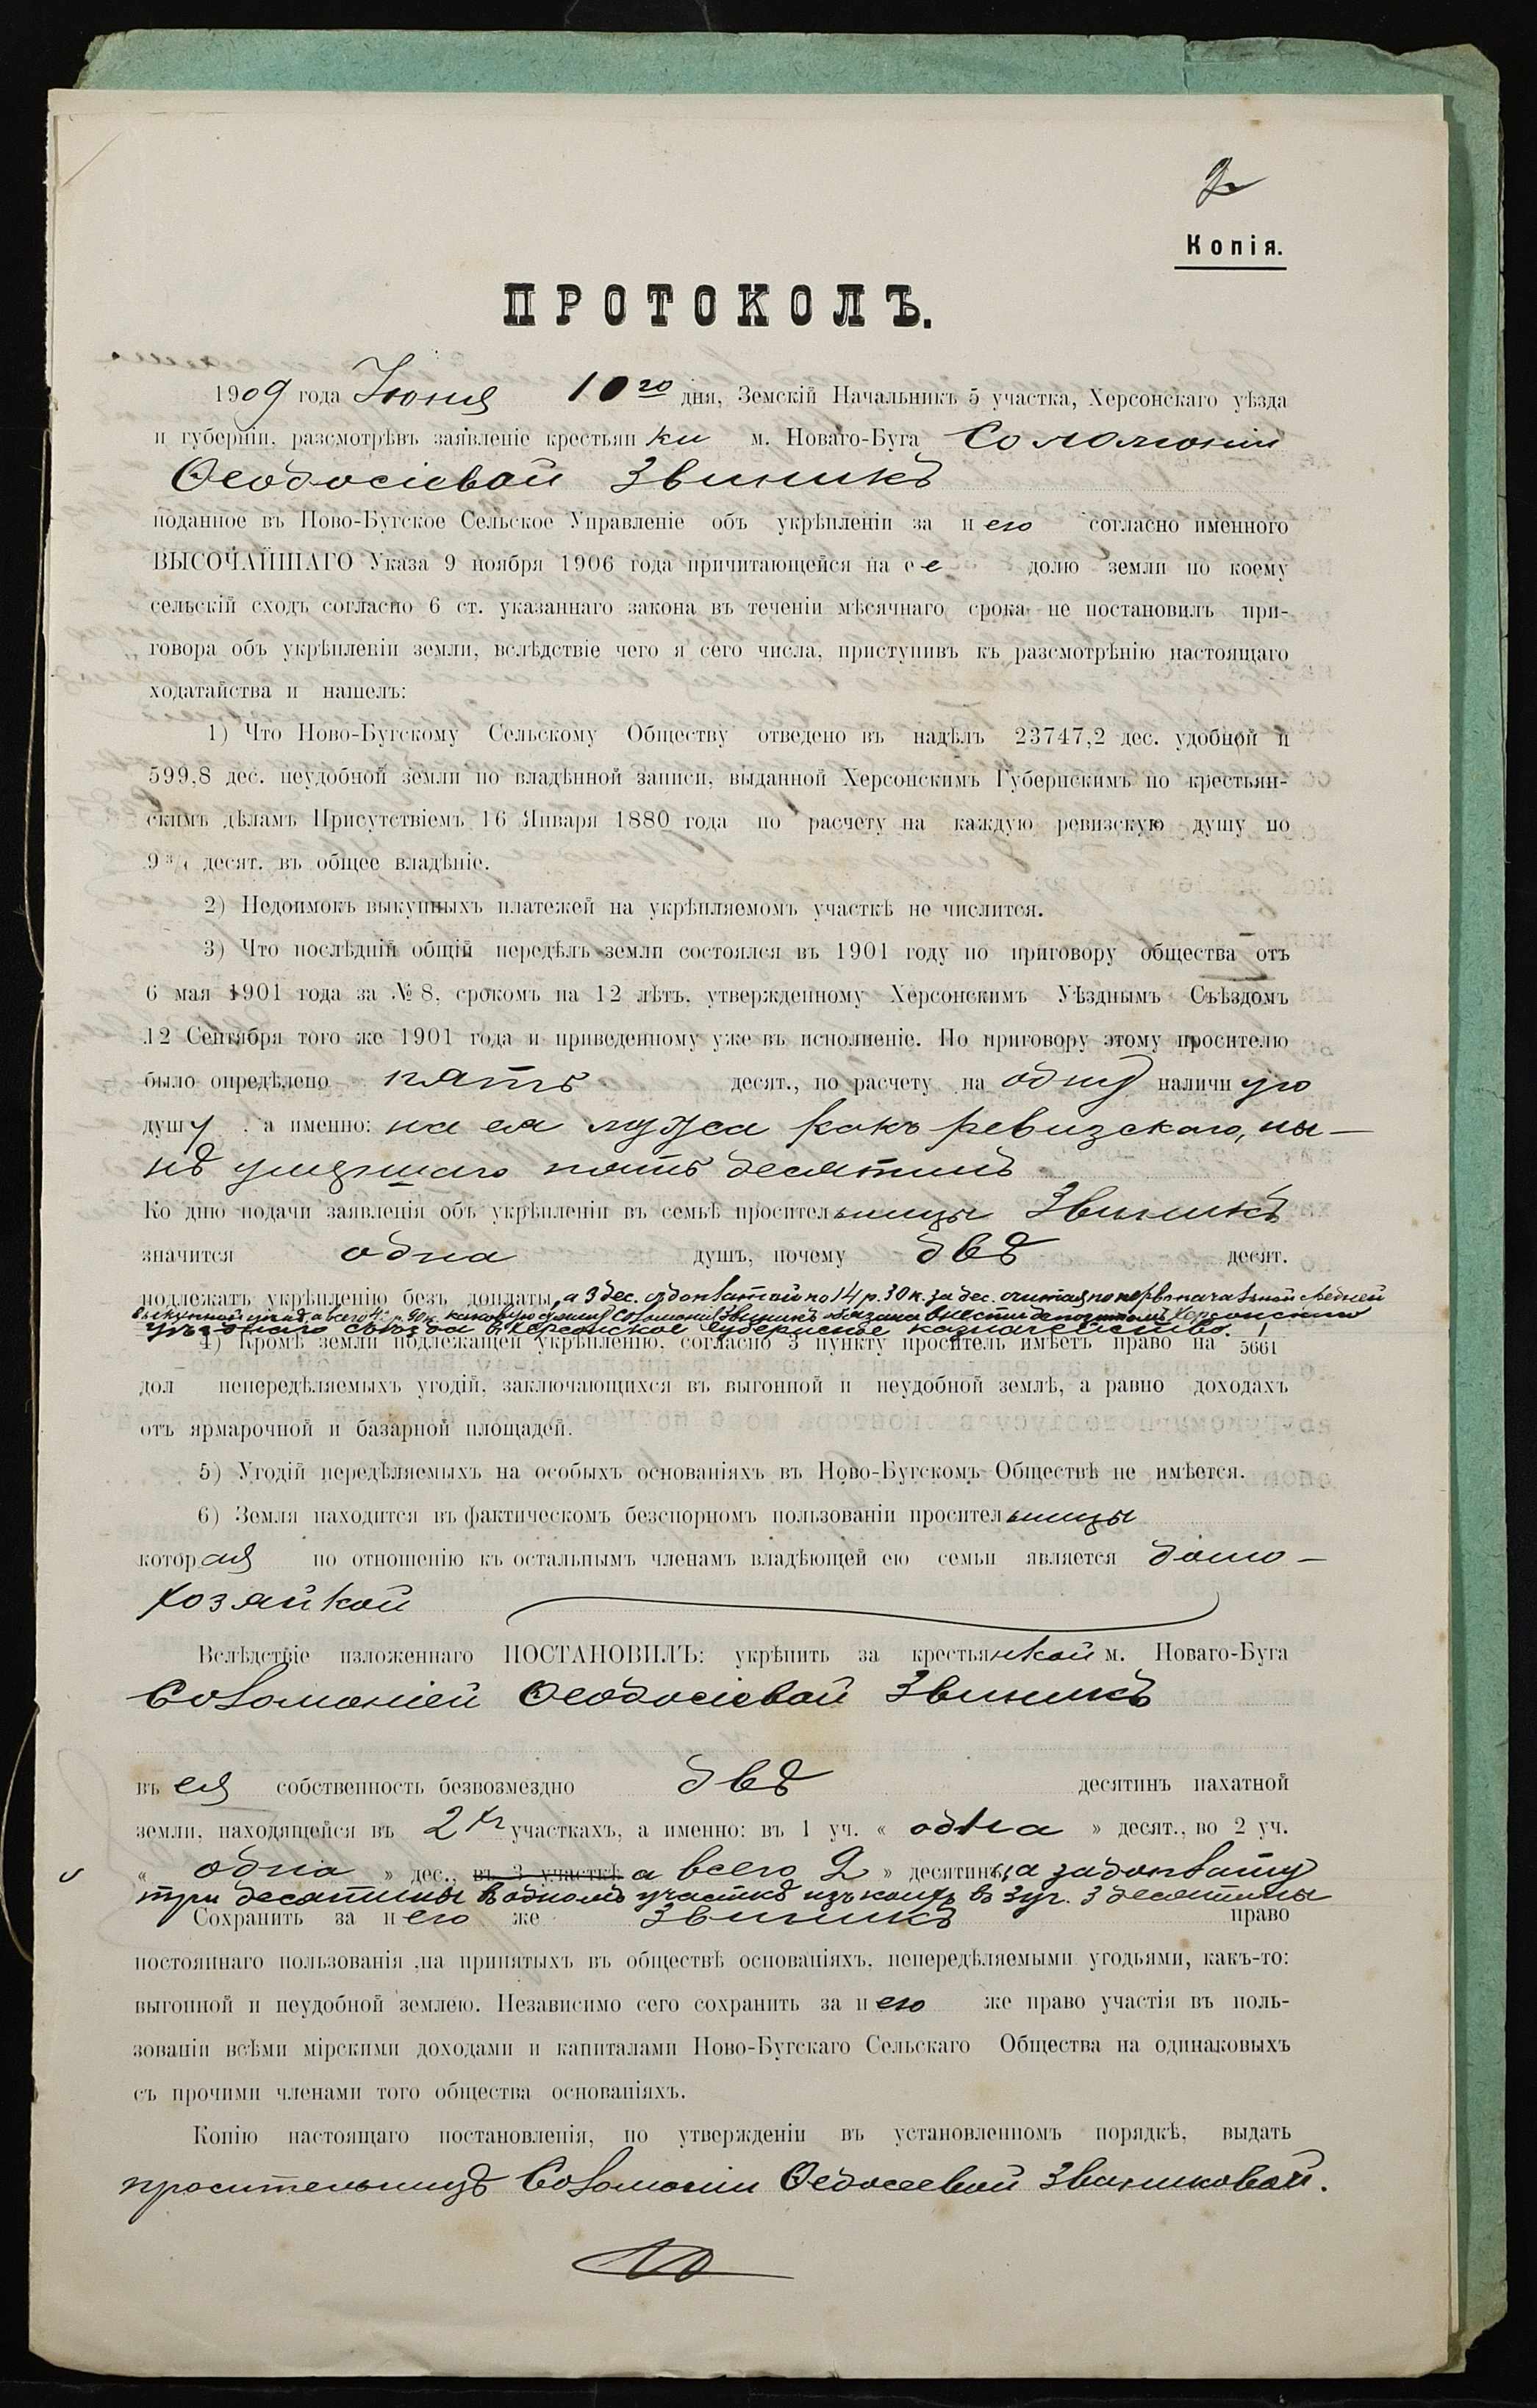 2
Копія.
ПРОТОКОЛЪ.
1909 года Іюня 10го дня, Земскій Начальникъ 5 участка, Херсонскаго уѣзда
и губерніи, разсмотрѣвъ заявленіе крестьянки м. Новаго-Буга Соломоніи
Ѳеодосіевой Звиникъ
поданное въ Ново-Бугское Сельское Управленіе объ укрѣпленіи за нею согласно именного
ВЫСОЧАЙШАГО Указа 9 ноября 1906 года причитающейся на ее долю земли по коему
сельскій сходъ согласно 6 ст. указаннаго закона въ теченіи мѣсячнаго срока не постановилъ при-
говора объ укрѣпленіи земли, вслѣдствіе чего я сего числа, приступивъ къ разсмотрѣнію настоящаго
ходатайства и нашелъ:
1) Что Ново-Бугскому Сельскому Обществу отведено въ надѣлъ 23747,2 дес. удобной и
599,8 дес. неудобной земли по владѣнной записи, выданной Херсонскимъ Губернскимъ по крестьян-
скимъ дѣламъ Присутствіемъ 16 Января 1880 года по расчету на каждую ревизскую душу по
9 десят. въ общее владѣніе.
2) Недоимокъ выкупныхъ платежей на укрѣпляемомъ участкѣ не числится.
3) Что послѣдній общій передѣлъ земли состоялся въ 1901 году по приговору общества отъ
6 мая 1901 года за № 8, срокомъ на 12 лѣтъ, утвержденному Херсонскимъ Уѣзднымъ Съѣздомъ
12 Сентября того же 1901 года и приведенному уже въ исполненіе. По приговору этому просителю
было опредѣлено пять десят., по расчету на одну наличную
душу, а именно: на ея мужа какъ ревизскаго, ны-
нѣ умершаго пять десятинъ
Ко дню подачи заявленія объ укрѣпленіи въ семьѣ просительницы Звиникъ
значится одна душъ, почему двѣ десят.
подлежатъ укрѣпленію безъ доплаты, а 3 дес. съ доплатой по 14 р. 30 к. за дес. считая по первоначальной средней
выкупной цѣнѣ, а всего 42 р. 90 к. каковую сумму Соломонія Звиникъ обязана внести депозитомъ Херсонскаго
уѣзднаго съѣзда въ Херсонское губернское казначейство.
4) Кромѣ земли подлежащей укрѣпленію, согласно 3 пункту проситель имѣетъ право на 1/5661
дол непередѣляемыхъ угодій, заключающихся въ выгонной и неудобной землѣ, а равно доходахъ
отъ ярмарочной и базарной площадей.
5) Угодій передѣляемыхъ на особыхъ основаніяхъ въ Ново-Бугскомъ Обществѣ не имѣется.
6) Земля находится въ фактическомъ безспорномъ пользованіи просительницы
которая по отношенію къ остальнымъ членамъ владѣющей ею семьи является домо-
хозяйкой
Вслѣдствіе изложеннаго ПОСТАНОВИЛЪ: укрѣпить за крестьянкой м. Новаго-Буга
Соломоніей Ѳеодосіевой Звиникъ
въ ея собственность безвозмездно двѣ десятинъ пахатной
земли, находящейся въ 2хъ участкахъ, а именно: въ 1 уч. « одна » десят., во 2 уч.
« одна » дес., въ 3 участкѣ а всего 2 » десятины, а за доплату
три десятины въ одномъ участкѣ изъ коихъ въ 3 уч. 3 десятины
Сохранить за нею же Звиникъ право
постояннаго пользованія, на принятыхъ въ обществѣ основаніяхъ, непередѣляемыми угодьями, какъ-то:
выгонной и неудобной землею. Независимо сего сохранить за нею же право участія въ поль-
зованіи всѣми мірскими доходами и капиталами Ново-Бугскаго Сельскаго Общества на одинаковыхъ
съ прочими членами того общества основаніяхъ.
Копію настоящаго постановленія, по утвержденіи въ установленномъ порядкѣ, выдать
просительницѣ Соломоніи Ѳедосеевой Звиниковой.